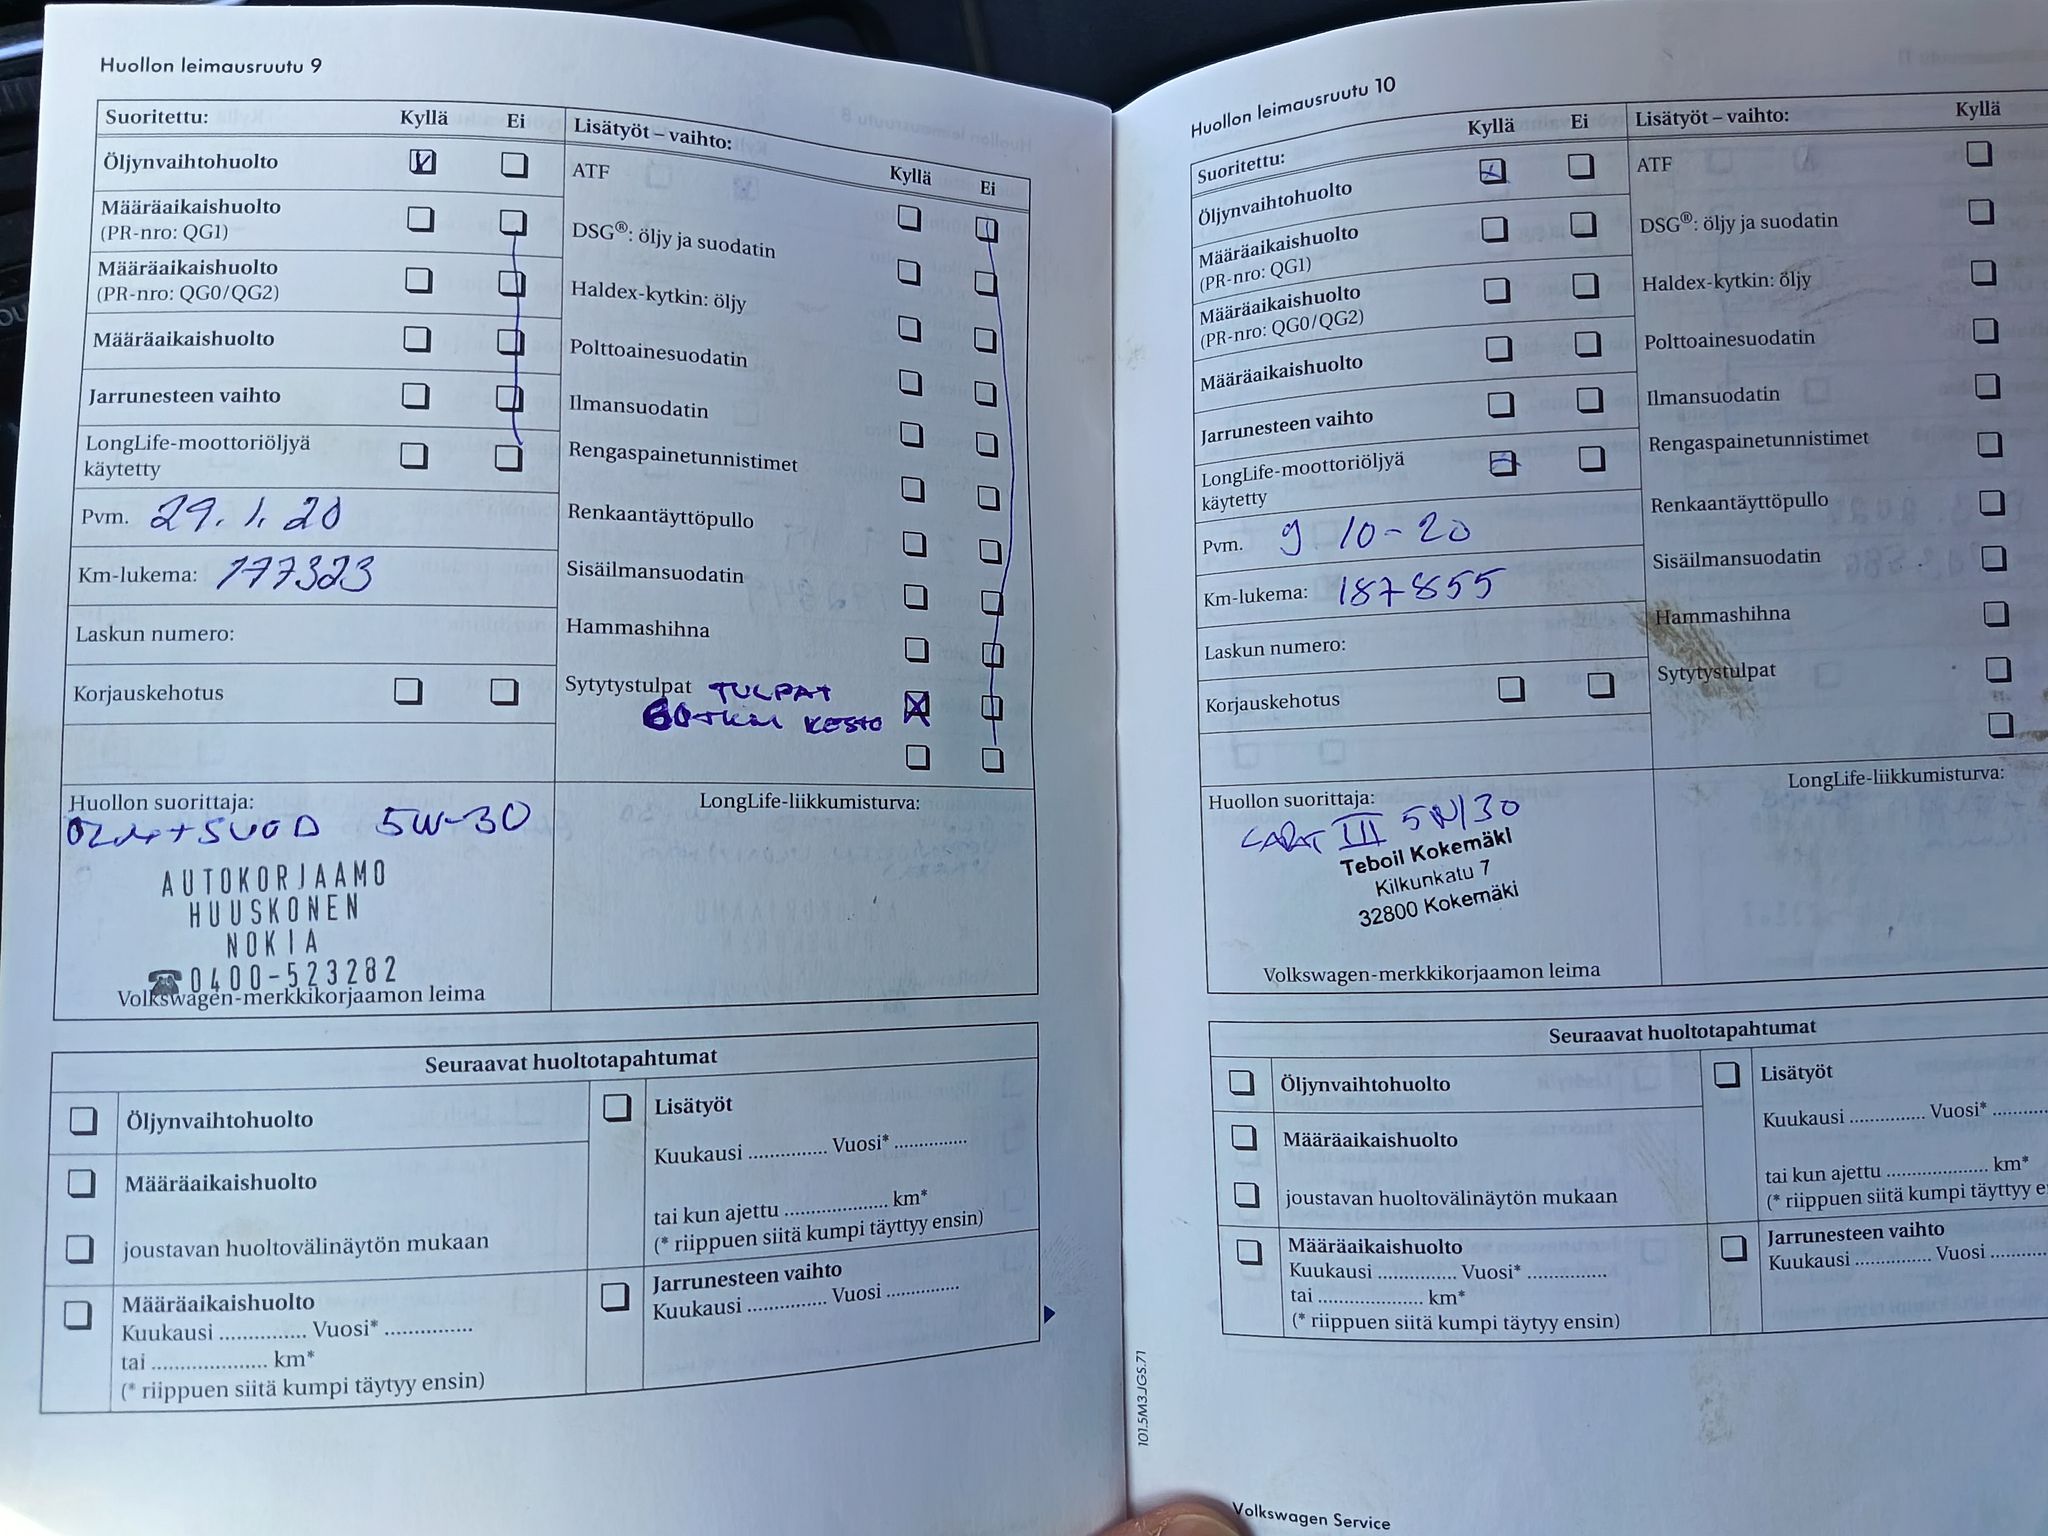 Huollon leimausruutu 9
Suoritettu: Kyllä Ei
Öljynvaihtohuolto
Määräaikaishuolto
(PR-nro: QG1)
Määräaikaishuolto
(PR-nro: QG0/QG2)
Määräaikaishuolto
Jarrunesteen vaihto
LongLife-moottoriöljyä
käytetty
Pvm. 29.1.20
Km-lukema: 177323
Laskun numero:
Korjauskehotus
Lisätyöt – vaihto: Kyllä Ei
ATF
DSG®: öljy ja suodatin
Haldex-kytkin: öljy
Polttoainesuodatin
Ilmansuodatin
Rengaspainetunnistimet
Renkaantäyttöpullo
Sisäilmansuodatin
Hammashihna
Sytytystulpat TULPAT
60tkm KESTO
Huollon suorittaja:
5W-30
AUTOKORJAAMO
HUUSKONEN
NOKIA
☎0400-523282
Volkswagen-merkkikorjaamon leima
LongLife-liikkumisturva:
Seuraavat huoltotapahtumat
Öljynvaihtohuolto
Määräaikaishuolto
joustavan huoltovälinäytön mukaan
Määräaikaishuolto
Kuukausi ............... Vuosi* ...............
tai .................... km*
(* riippuen siitä kumpi täytyy ensin)
Lisätyöt
Kuukausi .............. Vuosi* .............
tai kun ajettu .................. km*
(* riippuen siitä kumpi täyttyy ensin)
Jarrunesteen vaihto
Kuukausi .............. Vuosi .............
Huollon leimausruutu 10
Suoritettu: Kyllä Ei
Öljynvaihtohuolto
Määräaikaishuolto
(PR-nro: QG1)
Määräaikaishuolto
(PR-nro: QG0/QG2)
Määräaikaishuolto
Jarrunesteen vaihto
LongLife-moottoriöljyä
käytetty
Pvm. 9 10-20
Km-lukema: 187855
Laskun numero:
Korjauskehotus
Lisätyöt – vaihto: Kyllä
ATF
DSG®: öljy ja suodatin
Haldex-kytkin: öljy
Polttoainesuodatin
Ilmansuodatin
Rengaspainetunnistimet
Renkaantäyttöpullo
Sisäilmansuodatin
Hammashihna
Sytytystulpat
Huollon suorittaja:
III 5W/30
Teboil Kokemäki
Kilkunkatu 7
32800 Kokemäki
Volkswagen-merkkikorjaamon leima
LongLife-liikkumisturva:
Seuraavat huoltotapahtumat
Öljynvaihtohuolto
Määräaikaishuolto
joustavan huoltovälinäytön mukaan
Määräaikaishuolto
Kuukausi .............. Vuosi* ..............
tai .................... km*
(* riippuen siitä kumpi täytyy ensin)
Lisätyöt
Kuukausi ............. Vuosi* ..........
tai kun ajettu .................. km*
(* riippuen siitä kumpi täyttyy
Jarrunesteen vaihto
Kuukausi ............. Vuosi ..........
101.5M3.JGS.71
Volkswagen Service